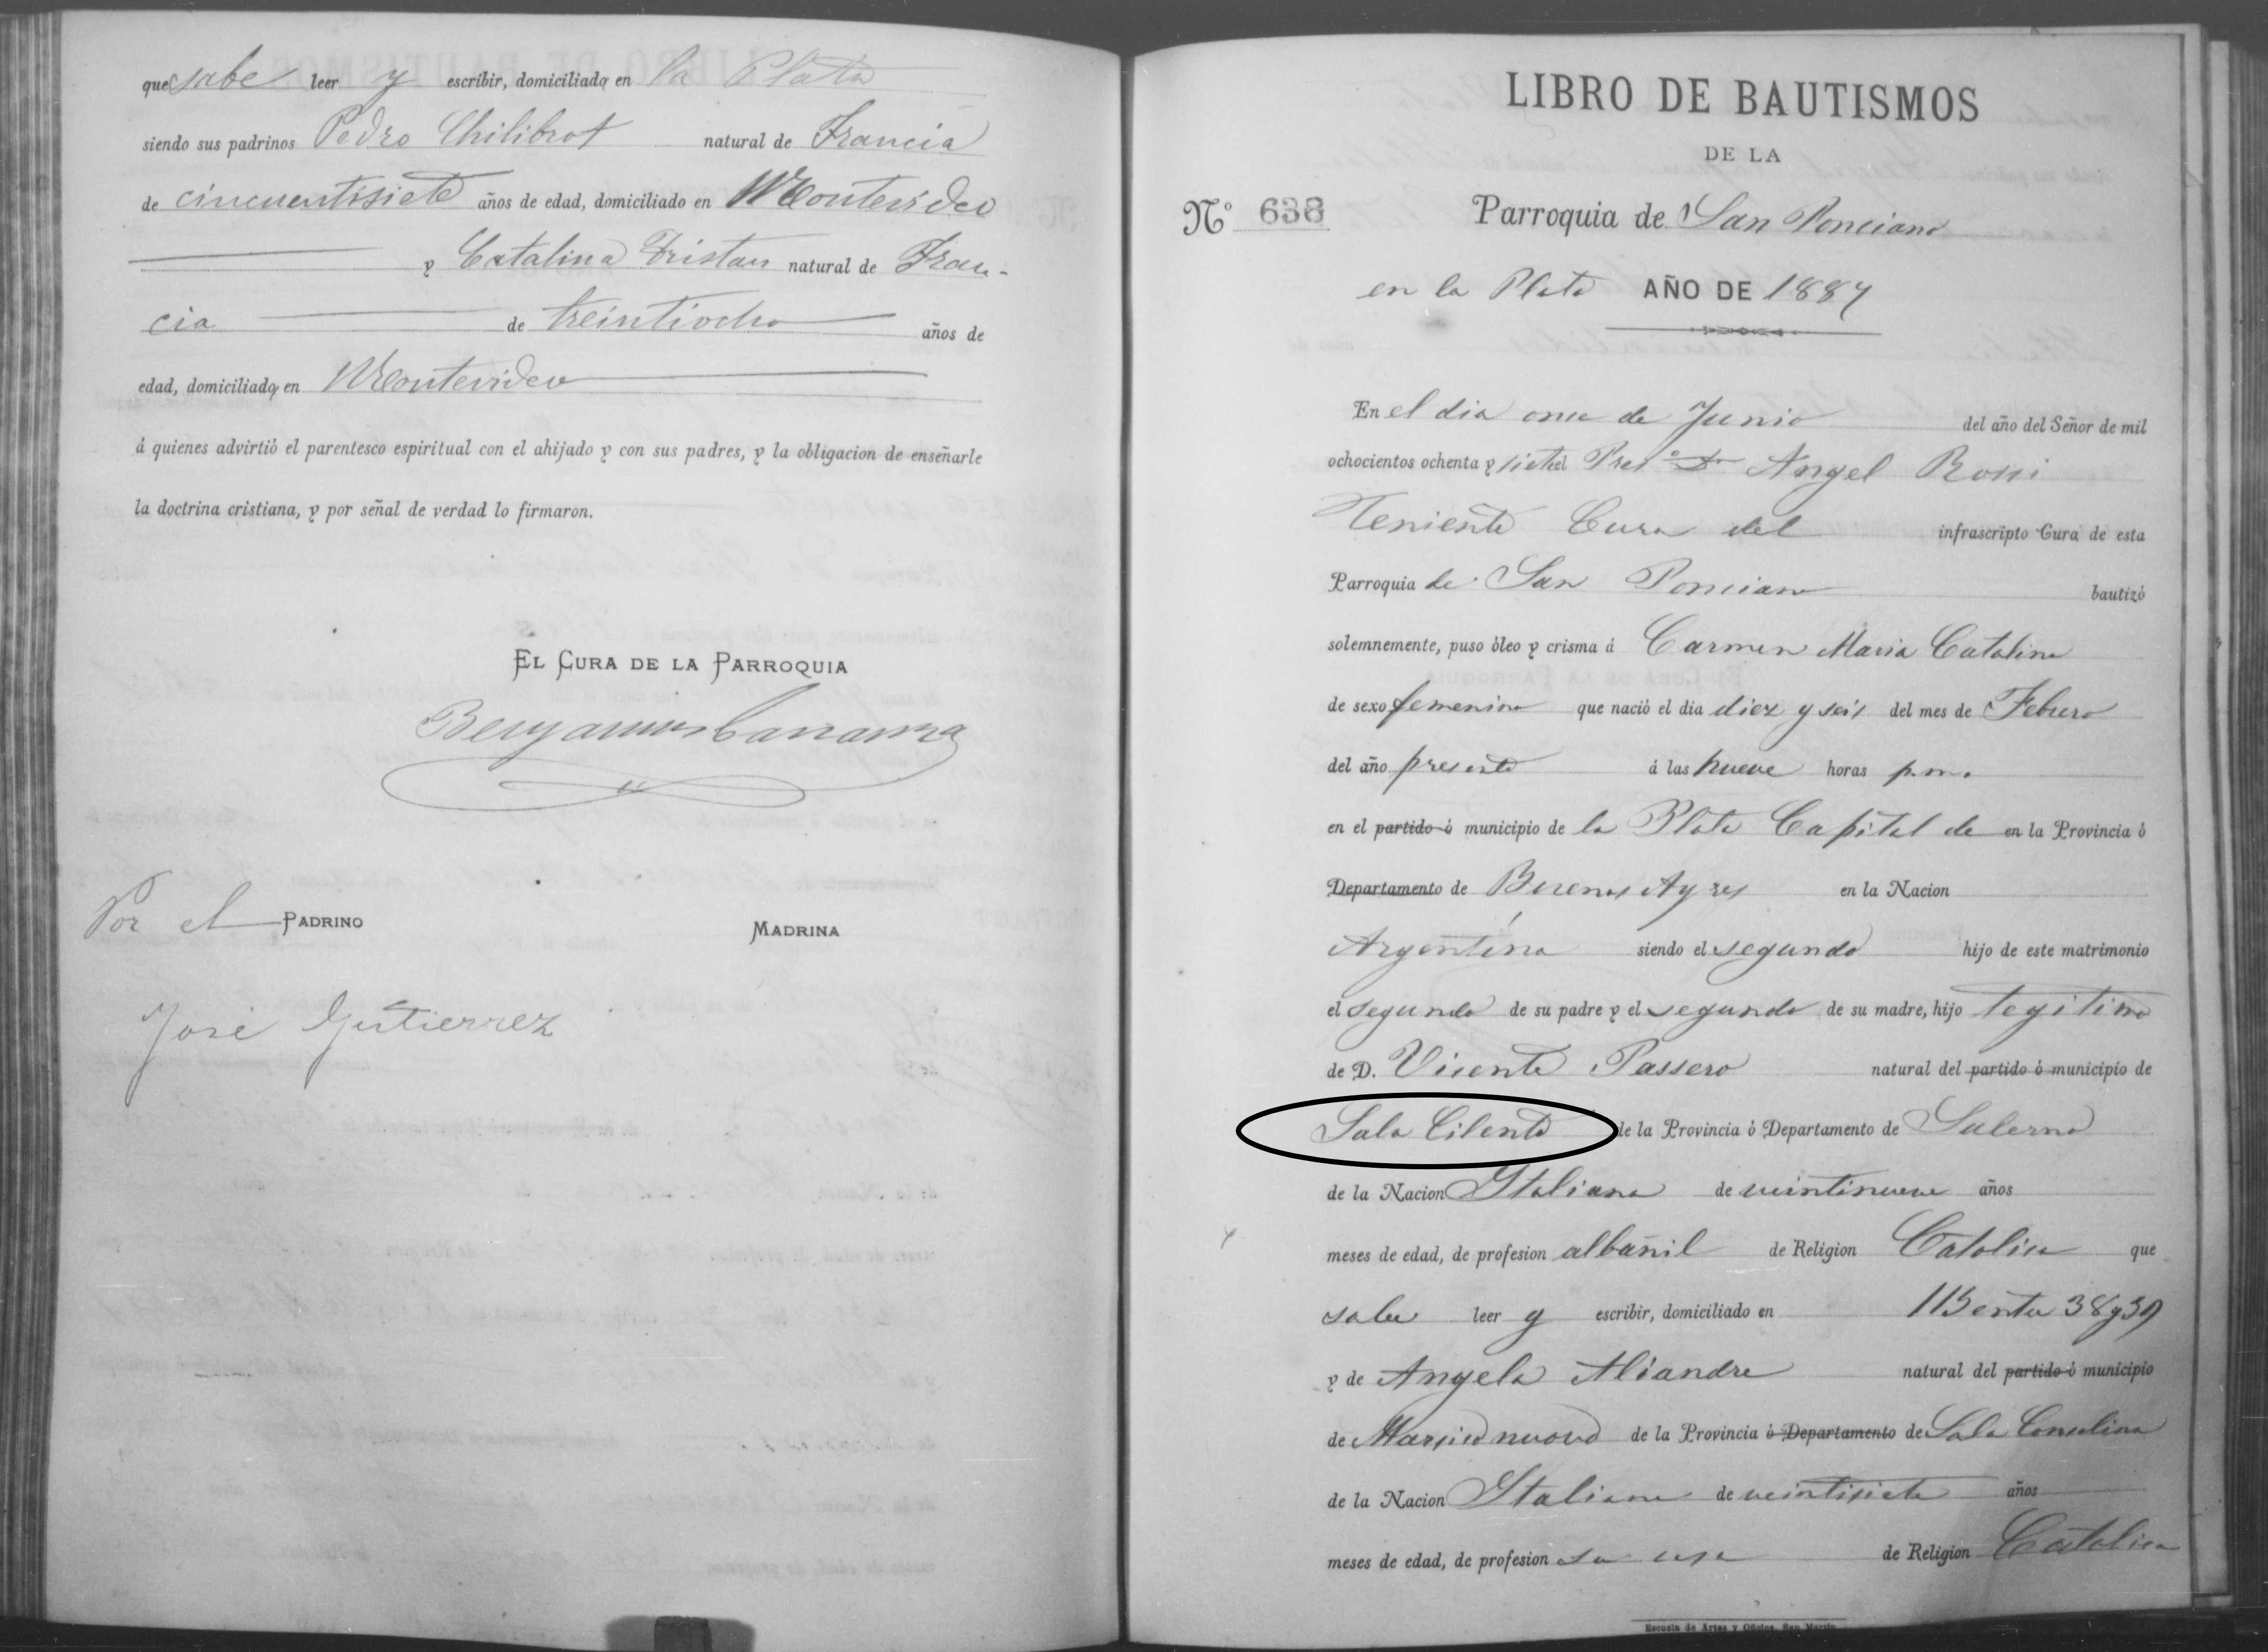 que sabe leer y escribir, domiciliado en la Plata
siendo sus padrinos Pedro Chilibrot natural de Francia
de cincuentisiete años de edad, domiciliado en Montevideo
y Catalina Tristan natural de Fran-
cia de treintiocho años de
edad, domiciliado en Montevideo
á quienes advirtió el parentesco espiritual con el ahijado y con sus padres, y la obligacion de enseñarle
la doctrina cristiana, y por señal de verdad lo firmaron.
EL CURA DE LA PARROQUIA
Por el PADRINO MADRINA
José Gutierrez
LIBRO DE BAUTISMOS
DE LA
Nº 638 Parroquia de San Ponciano
en la Plata AÑO DE 1887
En el dia once de Junio del año del Señor de mil
ochocientos ochenta y siete el Presº Dn Angel Rossi
Teniente Cura del infrascripto Cura de esta
Parroquia de San Ponciano bautizó
solemnemente, puso óleo y crisma á Carmen Maria Catalina
de sexo femenino que nació el dia diez y seis del mes de Febrero
del año presente á las nueve horas p.m.
en el partido ó municipio de la Plata Capital de en la Provincia ó
Departamento de Buenos Ayres en la Nacion
Argentina siendo el segundo hijo de este matrimonio
el segundo de su padre y el segundo de su madre, hijo legitimo
de D. Vicente Passero natural del partido ó municipio de
Sala Cilento de la Provincia ó Departamento de Salerno
de la Nacion Italiana de veintinueve años
meses de edad, de profesion albañil de Religion Catolica que
sabe leer y escribir, domiciliado en 115 entre 38 y 39
y de Angela Aliandre natural del partido ó municipio
de Marsico nuovo de la Provincia ó Departamento de Sala Consolina
de la Nacion Italiana de veintisiete años
meses de edad, de profesion su casa de Religion Catolica
Escuela de Artes y Oficios, San Martin